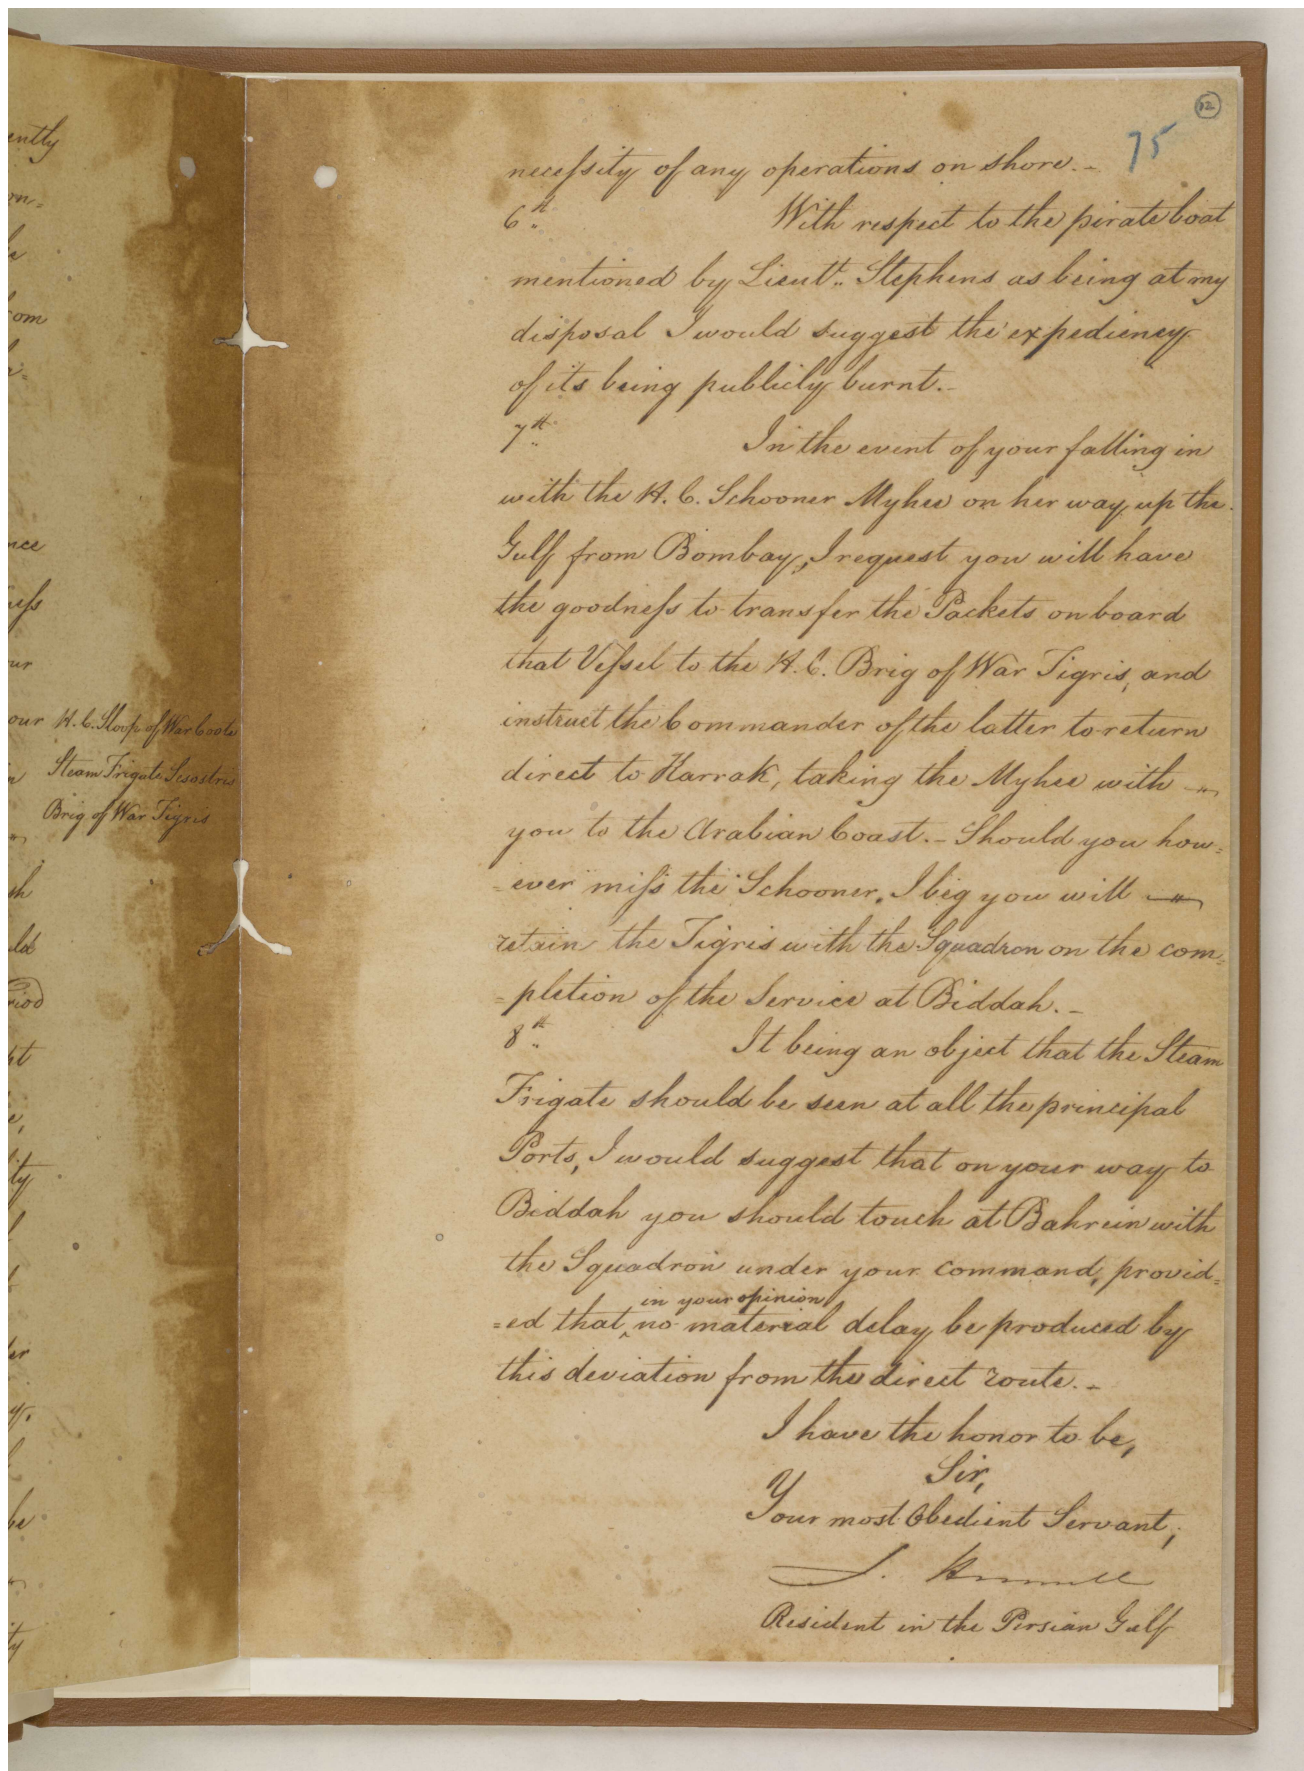 ently
on=
om
nce
ess
ur
our H. C. Sloop of War Coote
Steam Frigate Sesostris
Brig of War Tigris
ch
ld
riod
ht
ity
er
be
ty
12
75
necessity of any operations on shore.-
6th. With respect to the pirate boat
mentioned by Lieutt. Stephens as being at my
disposal I would suggest the expediency
of its being publicly burnt.-
7th. In the event of your falling in
with the H. C. Schooner Myhee on her way up the
Gulf from Bombay, I request you will have
the goodness to transfer the Packets on board
that Vessel to the H. C. Brig of War Tigris, and
instruct the Commander of the latter to return
direct to Karrak, taking the Myhee with
you to the Arabian Coast.- Should you how=
=ever miss the Schooner, I beg you will
retain the Tigris with the Squadron on the com=
=pletion of the Service at Biddah.-
8th. It being an object that the Steam
Frigate should be seen at all the principal
Ports, I would suggest that on your way to
Biddah you should touch at Bahrein with
the Squadron under your command, provid=
in your opinion
=ed that ‸ no material delay be produced by
this deviation from the direct route.-
I have the honor to be,
Sir,
Your most Obedient Servant,
S. Hennell
Resident in the Persian Gulf